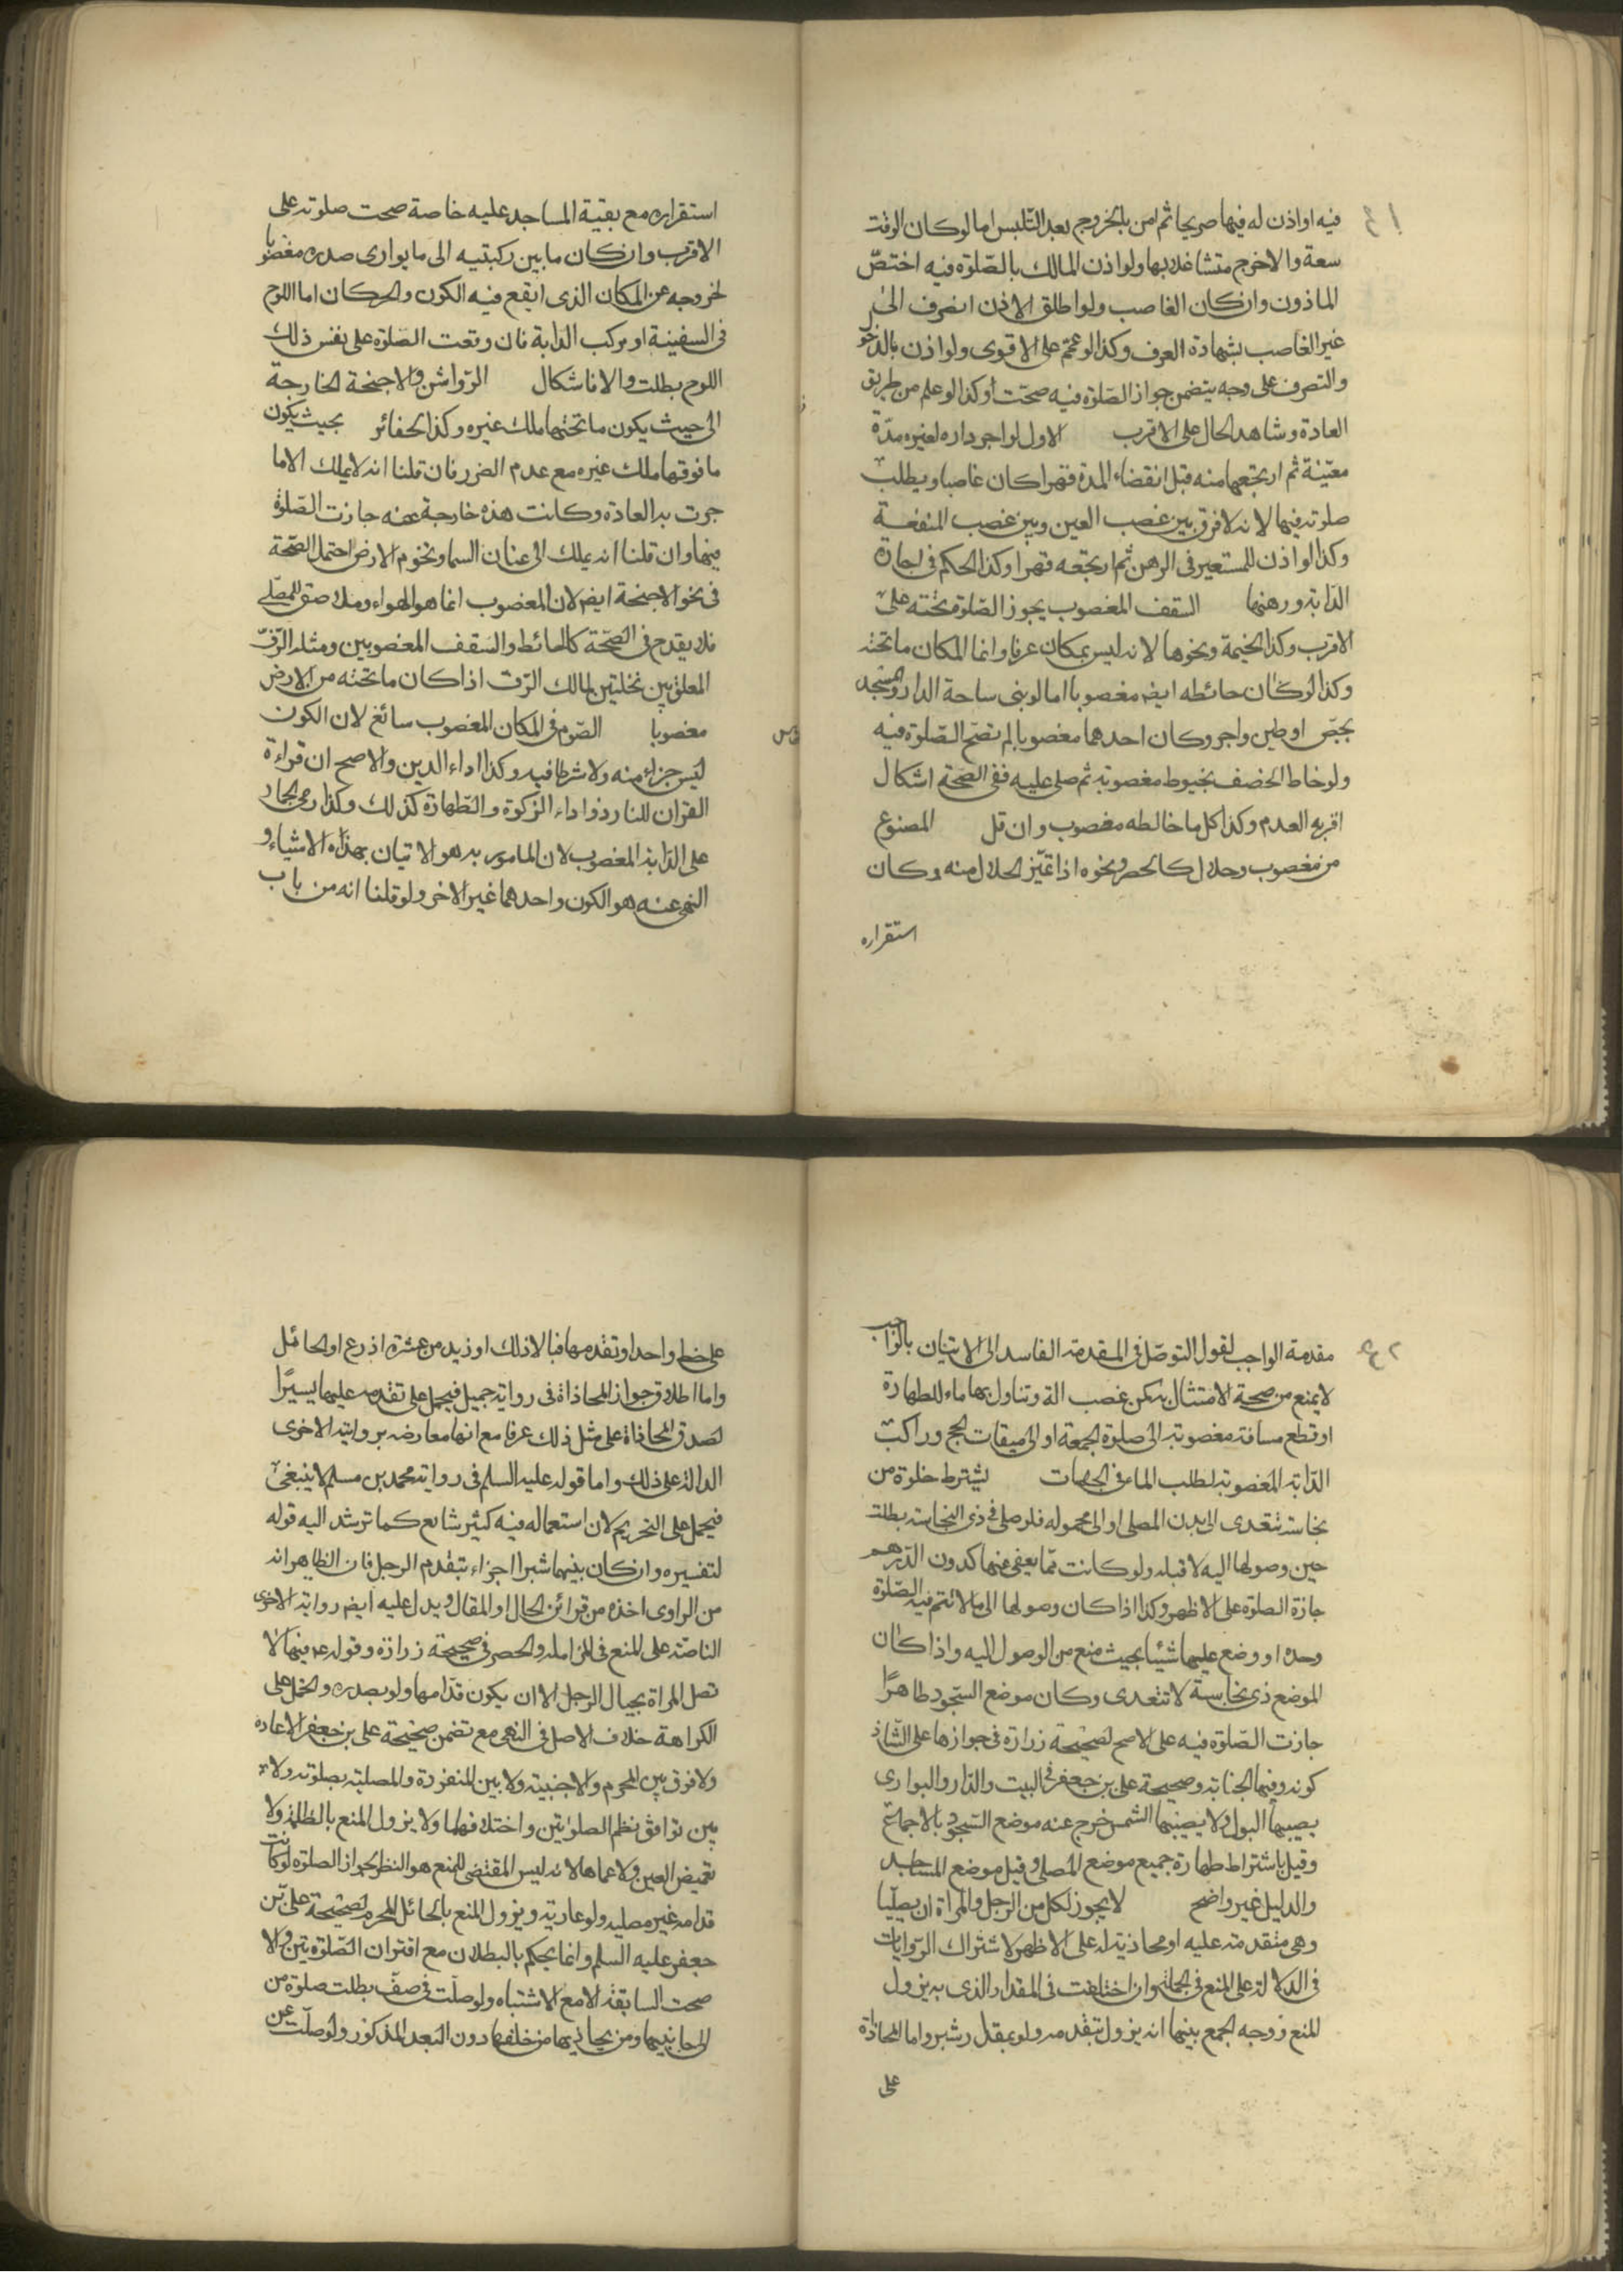 فيه او اذن له فيها صريحا ثم امن بالخروج بعد التلبس اما لو كان الوقت
سعة والا خرج متشاغلا بها ولو اذن المالك بالصلوة فيه اختص
الماذون وان كان الغاصب ولو اطلق الاذن انصرف الى
غير الغاصب بشهادة العرف وكذا لو عمم على الاقوى ولو اذن بالدخو
والتصرف على وجه يتضمن جواز الصلوة فيه صحت وكذا لو علم من طريق
العادة وشاهد الحال على الاقرب الاول لو اجر داره لغيره مدة
معينة ثم ارتجعها منه قبل انقضاء المدة قهرا كان غاصبا ويطلب
صلوته فيها لانه لا فرق بين غصب العين وبين غصب المنفعة
وكذا لو اذن للمستعير في الرهن ثم ارتجعه قهرا وكذا الحكم في اجارة
الدابة ورهنها السقف المغصوب يجوز الصلوة تحته على
الاقرب وكذا الخيمة ونحوها لانه ليس بمكان عرفا وانما المكان ما تحته
وكذا لو كان حائطه ايضا مغصوبا اما لو بنى ساحة الدار والمسجد
بجص او طين واجر وكان احدهما مغصوبا لم تصح الصلوة فيه
ولو خاط الخصف بخيوط مغصوبة ثم صلى عليه ففي الصحة اشكال
اقربه العدم وكذا كل ما خالطه مغصوب وان قل المصنوع
من مغصوب وحلال كالحصر ونحوه اذا تميز الحلال منه وكان
استقراره
استقراره مع بقية المساجد عليه خاصة صحت صلوته على
الاقرب وان كان ما بين ركبتيه الى ما يوارى صدره مغصوبا
لخروجه عن المكان الذي ايقع فيه الكون والحركات اما اللوح
في السفينة او مركب الدابة فان وقعت الصلوة على نفس ذلك
اللوح بطلت والا فاشكال الرواشن والاجنحة الخارجة
الى حيث يكون ما تحتها ملك غيره وكذا الحفائر بحيث يكون
ما فوقها ملك غيره مع عدم الضرر فان قلنا انه لا يملك الا ما
جرت به العادة وكانت هذه خارجة عنه جازت الصلوة
فيها وان قلنا انه يملك الى عنان السما وتخوم الارض احتمل الصحة
في نحو الاجنحة ايضا لان المغصوب انما هو الهواء وملاصق للمصلي
فلا يقدح في الصحة كالحائط والسقف المغصوبين ومثله الرف
المعلق بين نخلتين لمالك الرف اذا كان ما تحته من الارض
مغصوبا الصوم في المكان المغصوب سائغ لان الكون
ليس جزاء منه ولا شرطا فيه وكذا اداء الدين والاصح ان قراءة
القران للناذر واداء الزكوة والطهارة كذلك وكذا رمى الجمار
على الدابة المغصوب لان المامور به هو الاتيان بهذه الاشياء و
النهى عنه هو الكون واحدهما غير الاخر ولو قلنا انه من باب
مقدمة الواجب لقول التوصل في المقدمة الفاسد الى الاتيان بالواجب
لا يمنع من صحة الامتثال به كمن غصب الة وتناول بها ماء للطهارة
او قطع مسافة مغصوبة الى صلوة الجمعة او الى ميقات الحج وراكب
الدابة المغصوبة لطلب الماء في الجهات يشترط خلوه من
نجاسة تتعدى الى بدن المصلى او الى محموله فلو صلى في ذي النجاسة بطلت
حين وصولها اليه لا قبله ولو كانت مما يعفى عنها كدون الدرهم
جازة الصلوة على الاظهر وكذا اذا كان وصولها الى ما لا تتم فيه الصلوة
وحده او وضع عليها شيئا بحيث منع من الوصول اليه واذا كان
الموضع ذي نجاسة لا تتعدى وكان موضع السجود طاهرا
جازت الصلوة فيه على الاصح لصحيحة زرارة في جوازها على الشاذ
كونه وفيها الجنابة وصحيحة على بن جعفر في البيت والدار والبوارى
يصيبها البول ولا يصيبها الشمس خرج عنه موضع السجود بالاجماع
وقيل باشتراط طهارة جميع موضع المصلى وقيل موضع المساجد
والدليل غير واضح لا يجوز لكل من الرجل والمراة ان يصليا
وهي متقدمة عليه او محاذية له على الاظهر لاشتراك الروايات
في الدلالة على المنع في الجملة وان اختلفت في المقدار الذي به يزول
المنع ووجه الجمع بينها انه يزول بتقدمه ولو بمقدار شبر واما المحاذاة
على
على خط واحد او تقدمها فبالا ذلك او زيد من عشرة اذرع او الحائل
واما اطلاق جواز المحاذاة في رواية جميل فيحمل على تقدمه عليها يسيرا
لصدق المحاذاة على مثل ذلك عرفا مع انها معارضه بروايته الاخرى
الدالة على ذلك واما قوله عليه السلم في رواية محمد بن مسلم لا ينبغي
فيحمل على التحريم لان استعماله فيه كثير شايع كما ترشد اليه قوله
لتفسيره وان كان بينهما شبرا اجزاء بتقدم الرجل فان الظاهر انه
من الراوى اخذه من قرائن الحال او المقال ويدل عليه ايضا رواية الاخرى
الناصة على المنع في المزاملة والحصر في صحيحة زرارة وقوله ع فيها لا
تصل المراة بحيال الرجل الا ان يكون قدامها ولو بصدره والحمل على
الكراهة خلاف الاصل في النهى مع تضمن صحيحة على بن جعفر الاعادة
ولا فرق بين المحرم والاجنبية ولا بين المنفردة والمصلية بصلوته ولا
بين توافق نظم الصلوتين واختلافهما ولا يزول المنع بالظلمة ولا
تغميض العين ولا عماها لانه ليس المقتضى للمنع هو النظر لجواز الصلوة لو كانت
قدامه غير مصلية ولو عارية ويزول المنع بالحائل للمحرم لصحيحة على بن
جعفر عليه السلم وانما يحكم بالبطلان مع اقتران الصلوتين والا
صحت السابقة الا مع الاشتباه ولو صلت في صف بطلت صلوة من
الى جانبيها ومن يحاذيها من خلفها دون البعد المذكور ولو صلت عن